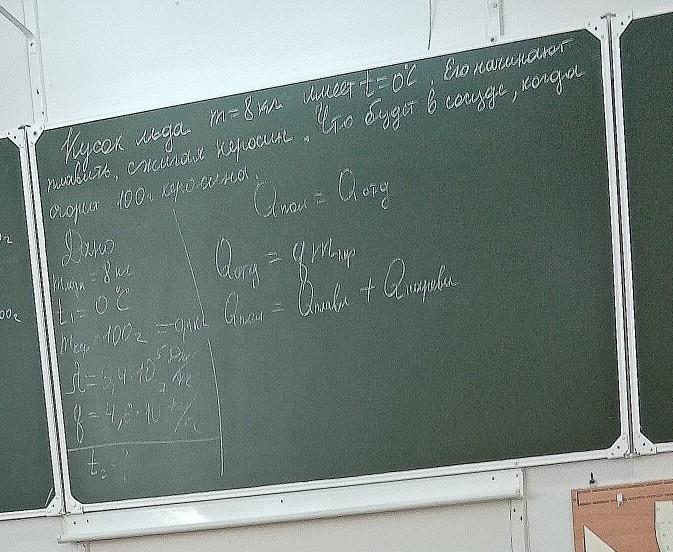 Кусок льда m = 8 кг имеет t = 0°C. Его начинают
плавить, сжигая керосин. Что будет в сосуде, когда
сгорит 100 г керосина.
Qпол = Qотд
Дано
mльда = 8 кг
t₁ = 0°C
mкер = 100 г = 0,1 кг
λ = 3,4·10⁵ Дж/кг
q = 4,6·10⁷ Дж/кг
t₂ - ?
Qотд = q mкер
Qпол = Qплавл + Qнагревы